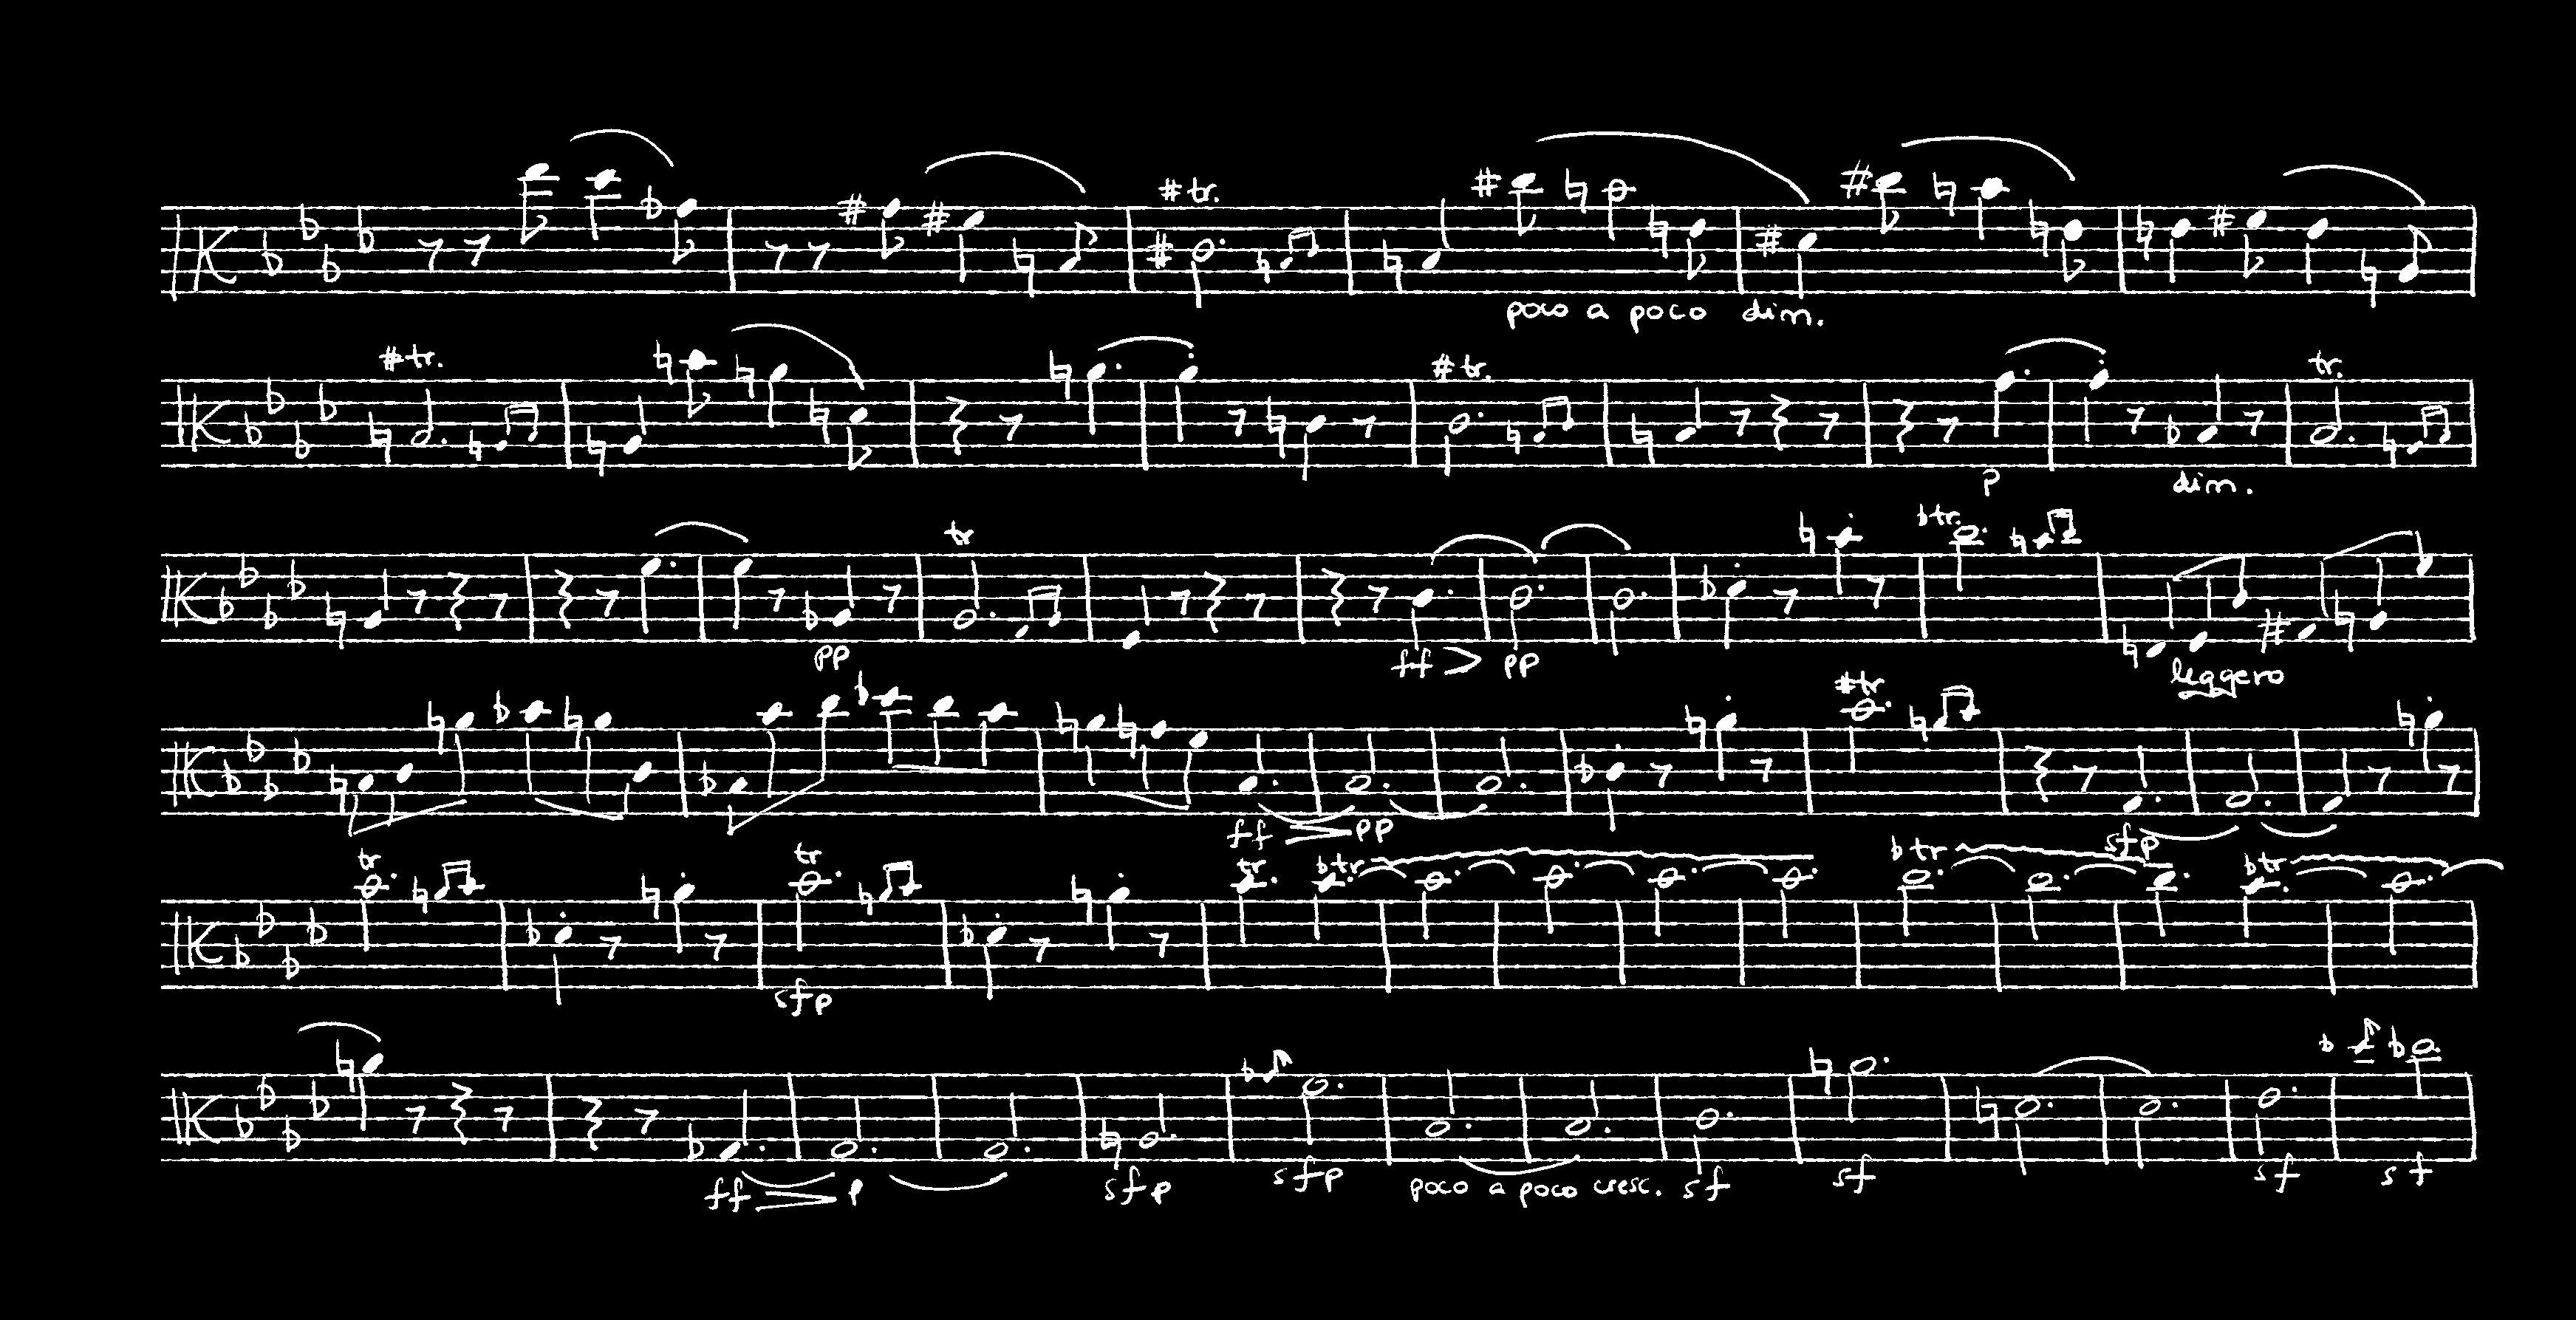 tr.
poco a poco dim.
tr.
tr.
tr.
p
dim.
tr
btr.
pp
ff > pp
leggero
tr
ff > pp
sfp
tr
tr
tr.
btr.
btr
btr
sfp
ff > p
sfp
sfp
poco a poco cresc.
sf
sf
sf
sf